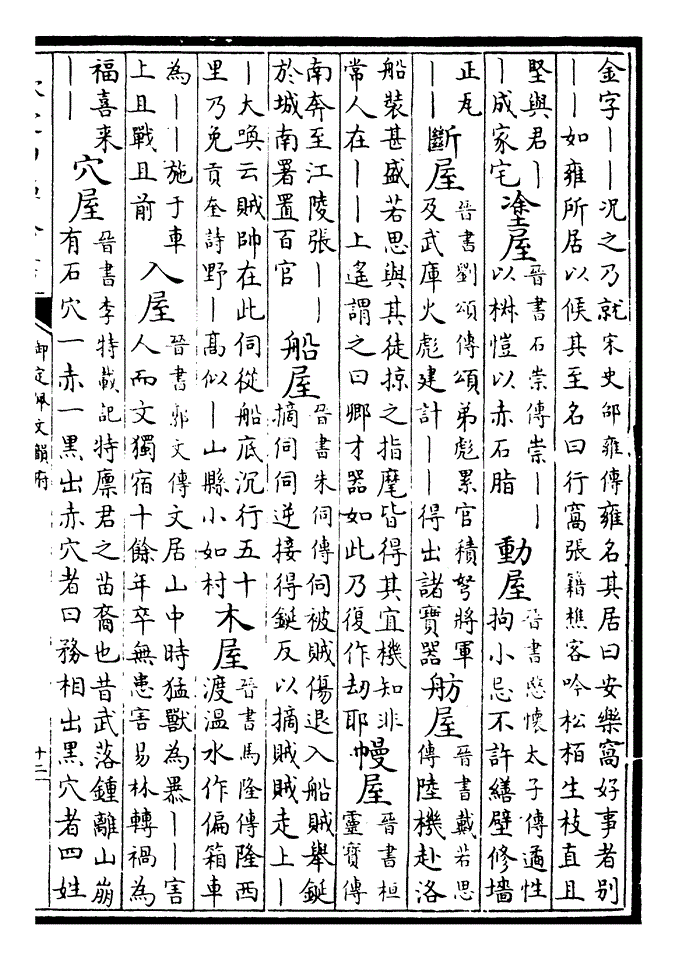 金字——況之乃就宋史邵雍傳雍名其居曰安樂窩好事者別
——如雍所居以候其至名曰行窩張籍樵客吟松栢生枝直且
堅與君—
—成家宅
塗屋
晉書石崇傳崇——
以椒愷以赤石脂
動屋
晉書愍懷太子傳遹性
拘小忌不許繕壁修墻
正瓦
——
斷屋
晉書劉頌傳頌弟彪累官積弩將軍
及武庫火彪建計——得出諸寶器
舫屋
晉書戴若思
傳陸機赴洛
船裝甚盛若思與其徒掠之指麾皆得其宜機知非
常人在——上遙謂之曰卿才器如此乃復作劫耶
幔屋
晉書桓
靈寶傳
南奔至江陵張——
於城南署置百官
船屋
晉書朱伺傳伺被賊傷退入船賊舉鋋
摘伺伺逆接得鋋反以摘賊賊走上—
—大喚云賊帥在此伺從船底沉行五十
里乃免貢奎詩野—髙似—山縣小如村
木屋
晉書馬隆傳隆西
渡温水作偏箱車
為——施于車
上且戰且前
入屋
晉書郭文傳文居山中時猛獸為暴——害
人而文獨宿十餘年卒無患害易林轉禍為
福喜来
——
穴屋
晉書李特載記特廩君之苗裔也昔武落鍾離山崩
有石穴一赤一黑出赤穴者曰務相出黑穴者四姓
御定佩文韻府
十二